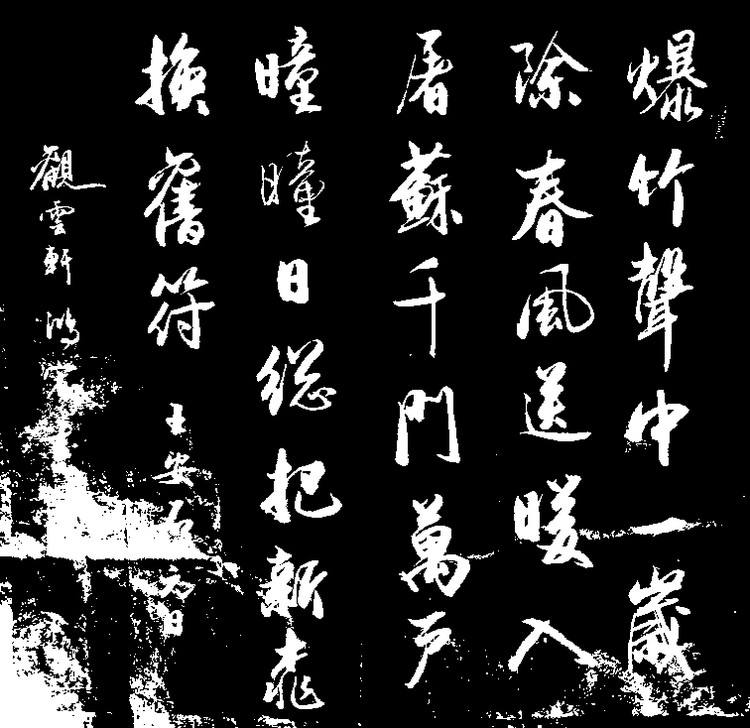 爆竹聲中一歲
除春風送暖入
屠蘇千門萬戶
曈曈日總把新桃
換舊符 王安石 元日
觀雲軒 鴻